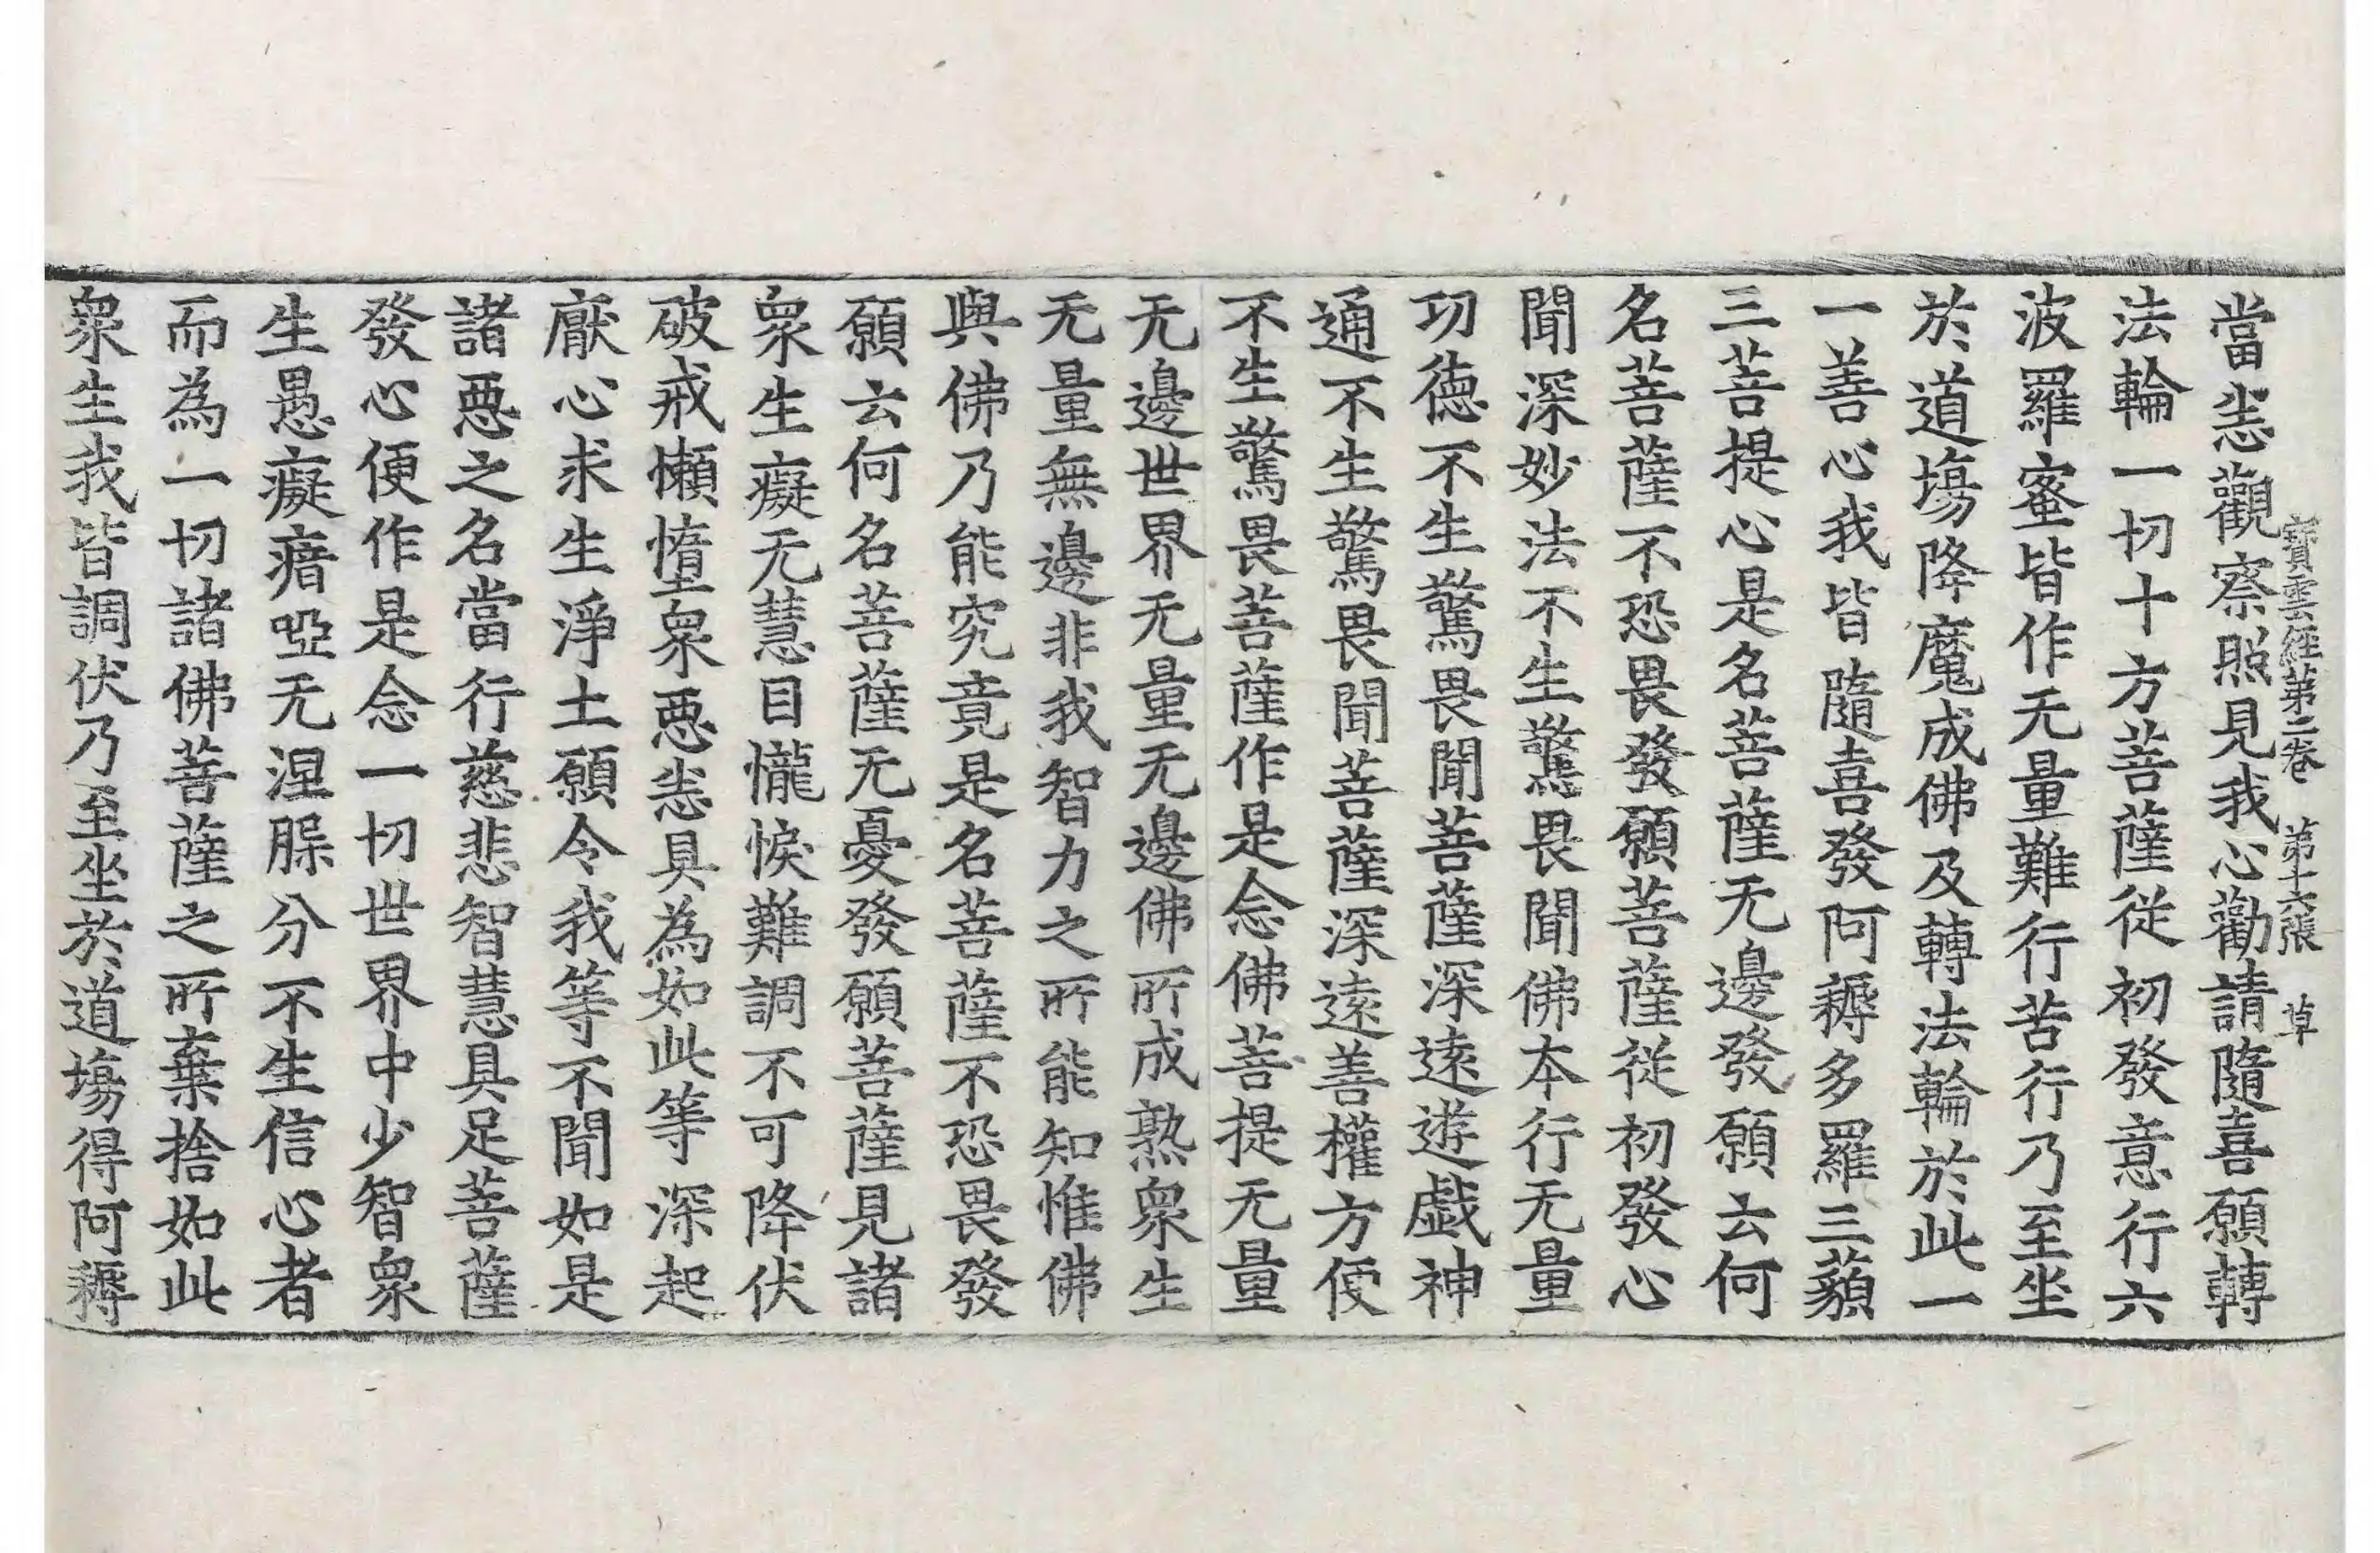 寶雲經第二卷 第十六張 草
當恙觀察照見我心勸請隨喜願轉
法輪一切十方菩薩從初發意行六
波羅蜜皆作无量難行苦行乃至坐
於道場降魔成佛及轉法輪於此一
一善心我皆隨喜發阿耨多羅三藐
三菩提心是名菩薩无邊發願云何
名菩薩不恐畏發願菩薩從初發心
聞深妙法不生驚畏聞佛本行无量
功德不生驚畏聞菩薩深遠遊戲神
通不生驚畏聞菩薩深遠善權方便
不生驚畏菩薩作是念佛菩提无量
无邊世界无量无邊佛所成熟衆生
无量無邊非我智力之所能知惟佛
與佛乃能究竟是名菩薩不恐畏發
願云何名菩薩无憂發願菩薩見諸
衆生癡无慧目儱悷難調不可降伏
破戒懶墮衆惡恙具為如此等深起
厭心求生淨土願令我等不聞如是
諸惡之名當行慈悲智慧具足菩薩
發心便作是念一切世界中少智衆
生愚癡瘖啞无涅槃分不生信心者
而為一切諸佛菩薩之所棄捨如此
衆生我皆調伏乃至坐於道場得阿耨